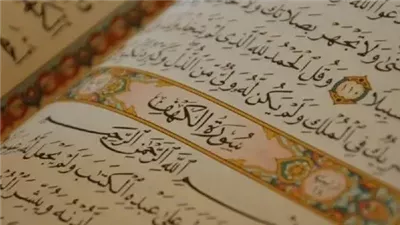 وَلَا تَجْهَرْ بِصَلَاتِكَ
سَبِيلًا ١١٠ وَقُلِ الْحَمْدُ لِلَّهِ الَّذِي لَمْ يَتَّخِذْ وَلَدًا
فِي الْمُلْكِ وَلَمْ يَكُنْ لَهُ وَلِيٌّ مِنَ الذُّلِّ وَكَبِّرْهُ
سُورَةُ الْكَهْفِ
بِسْمِ اللَّهِ الرَّحْمَٰنِ الرَّحِيمِ
عَلَىٰ عَبْدِهِ الْكِتَٰبَ وَلَمْ يَجْعَلْ
لَدُنْهُ وَيُبَشِّرَ